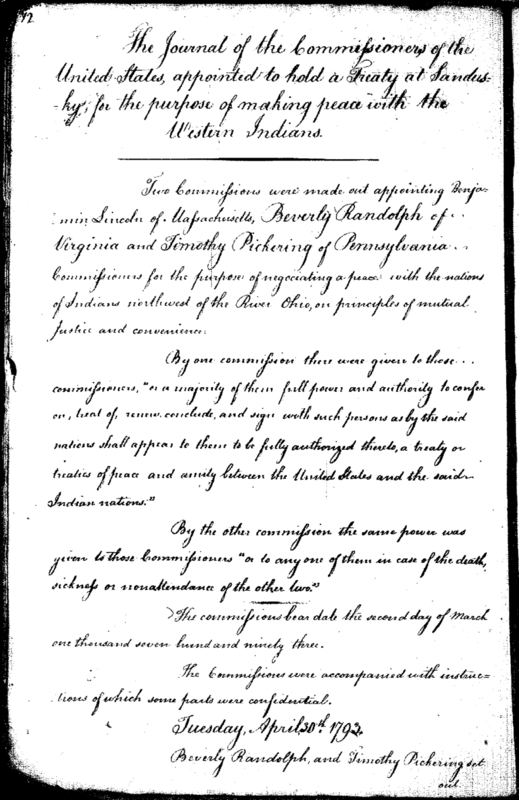 12
The Journal of the Commissioners of the
United States, appointed to hold a Treaty at Sandus-
-ky, for the purpose of making peace with the
Western Indians.
Two Commissions were made out appointing Benja-
min Lincoln of Massachusetts, Beverly Randolph of
Virginia and Timothy Pickering of Pennsylvania
Commissioners for the purpose of negociating a peace with the nations
of Indians northwest of the River Ohio, on principles of mutual
Justice and convenience.
By one commission there were given to those
commissioners, "or a majority of them full power and authority to confer
on, treat of, renew, conclude, and sign with such persons as by the said
nations shall appear to them to be fully authorized thereto, a treaty or
treaties of peace and amity between the United States and the said
Indian nations."
By the other commission the same power was
given to those Commissioners "or to any one of them in case of the death,
sickness or nonattendance of the other two."
The commissions bear date the second day of March
one thousand seven hund and ninety three.
The Commissions were accompanied with instruc-
tions of which some parts were confidential.
Tuesday, April, 30th. 1793.
Beverly Randolph, and Timothy Pickering set
out